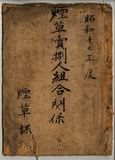 昭和十七年度
煙草賣捌人組合関係
煙草課